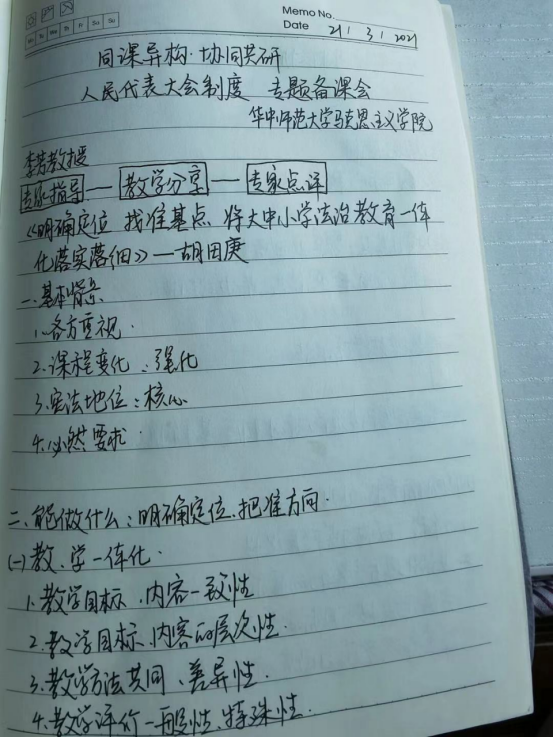 Memo No.
Mo Tu We Th Fr Sa Su
Date 21 / 3 / 2021
同课异构·协同共研
人民代表大会制度 专题备课会
华中师范大学马克思主义学院
李芳教授
专家指导 — 教学分享 — 专家点评
《明确定位 找准基点 将大中小学法治教育一体
化落实落细》—胡田庚
一、基本背景
1、各方重视.
2.课程变化:强化
3.宪法地位:核心
4.必然要求
二、能做什么:明确定位、把准方向.
(一)教、学一体化.
1.教学目标、内容一致性
2.教学目标、内容的层次性.
3.教学方法共同、差异性.
4.教学评价一般性、特殊性.